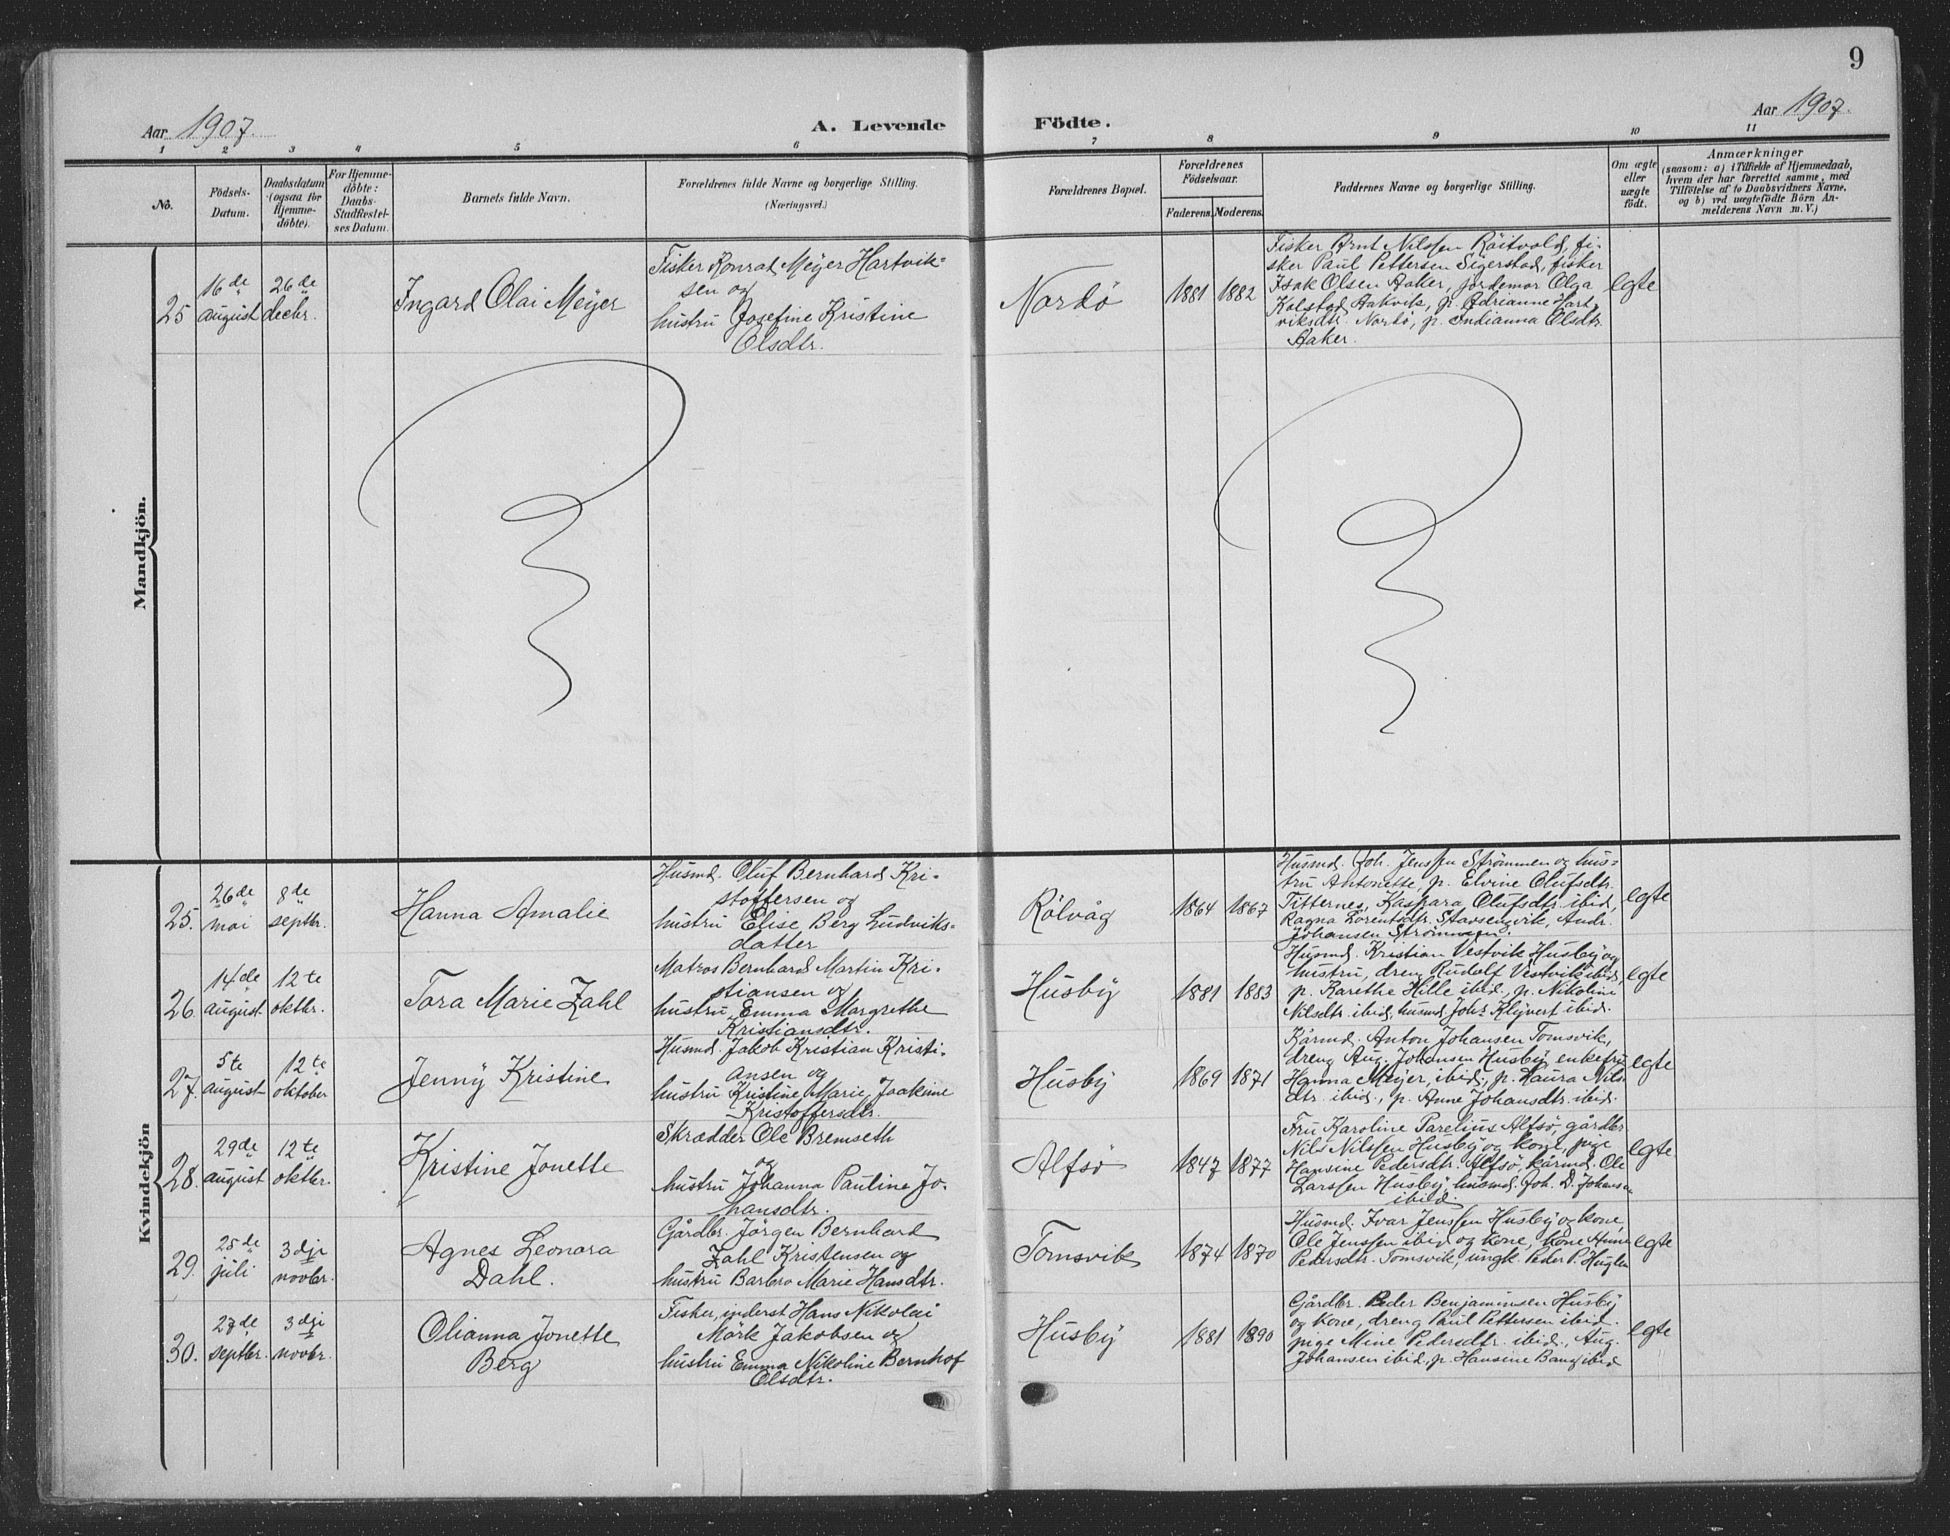 9
Aar 1907.
A. Levende Födte.
Aar 1907.
1 2 3 4 5 6 7 8 9 10 11
No.
Födsels-
Datum.
Daabsdatum
(ogsaa for
Hjemme-
döbte).
For Hjemme-
döbte:
Daabs-
Stadfæstel-
ses Datum.
Barnets fulde Navn.
Forældrenes fulde Navne og borgerlige Stilling.
(Næringsvei.)
Forældrenes Bopæl.
Forældrenes
Födselsaar.
Faderens. Moderens.
Faddernes Navne og borgerlige Stilling.
Om ægte
eller
uægte
födt.
Anmærkninger
(saasom: a) i Tilfælde af Hjemmedaab,
hvem der har forrettet samme, med
Tilföielse af to Daabsvidners Navne,
og b) ved uægtefödte Börn An-
melderens Navn m. V.)
Mandkjön.
25
16de
august
26de
decbr.
Ingard Olai Meyer
Fisker Konrad Meyer Hartvik-
sen og
hustru Josefine Kristine
Olsdtr.
Nordö
1881 1882
Fisker Arnt Nilssen Röitvold, fi-
sker Paul Pettersen Sigerstad, fisker
Isak Olsen Aaker, jordemor Olga
Kolstad Aakvik, p. Adrianne Hart-
viksdtr. Nordö, p. Indianna Olsdtr.
Aaker.
egte
Kvindekjön
25.
26de
mai
8de
septbr.
Hanna Amalie
Husmd. Oluf Bernhard Kri-
stoffersen og
hustru Elise Berg Ludviks-
datter
Rölvåg
1864 1867
Husmd. Joh. Jenssen Strömmen og hus-
tru Antonette, p. Elvine Olufsdtr.
Titternes, Kaspara Olufsdtr. ibid,
Ragna Lorentsdtr. Stavsengvik, Andr.
Johansen Strömmen.
egte
26.
14de
august
12te
oktbr.
Tora Marie Zahl
Matros Bernhard Martin Kri-
stiansen og
hustru Emma Margrethe
Kristiansdtr.
Husby
1881 1883
Husmd. Kristian Vestvik Husby og
hustru, dreng Rudolf Vestvik ibid,
p. Karethe Hille ibid., p. Nikoline
Nilsdtr. ibid, husmd. Johs Klejvert ibid.
egte
27.
5te
august
12te
oktober
Jenny Kristine
Husmd. Jakob Kristian Kristi-
ansen og
hustru Kristine Marie Joakime
Kristoffersdtr.
Husby
1869 1871
Kårmd. Anton Johansen Tomsvik,
dreng Aug. Johansen Husby, enkefru
Hanna Meyer, ibid., p. Laura Nils-
dtr. ibid., p. Anne Johansdtr. ibid.
egte
28.
29de
august
12te
oktbr.
Kristine Jonette
Skrædder Ole Bremseth
og
hustru Johanna Pauline Jo-
hansdtr.
Alfsö
1847 1877
Fru Karoline Parelius Alfsö, gårdbr.
Nils Nilssen Husby og kone, pige
Hansine Pedersdtr. Alfsö, kårmd. Ole
Larssen Husby, husmd. Joh. D. Johansen
ibid.
egte
29.
25de
juli
3dje
novbr.
Agnes Leonora
Dahl.
Gårdbr. Jörgen Bernhard
Zahl Kristensen og
hustru Barbro Marie Hansdtr.
Tomsvik
1874 1870
Husmd. Ivar Jenssen Husby og kone,
Ole Jenssen ibid og kone, kone Anne
Pedersdtr. Tomsvik, ungk. Peder P. Huglen
egte
30.
27de
septbr.
3dje
novbr.
Olianna Jonette
Berg
Fisker, inderst Hans Nikolai
Mörk Jakobsen og
hustru Emma Nikoline Bernhof
Olsdtr.
Husby
1881 1890
Gårdbr. Peder Benjaminsen Husby
og kone, dreng Paul Pettersen ibid.
pige Mine Pedersdtr. ibid., Aug.
Johansen ibid, p. Hansine Bang ibid
egte